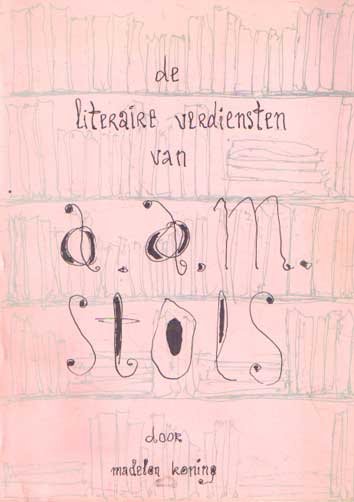 de
literaire verdiensten
van
a.a.m.
stols
door
madelon koning